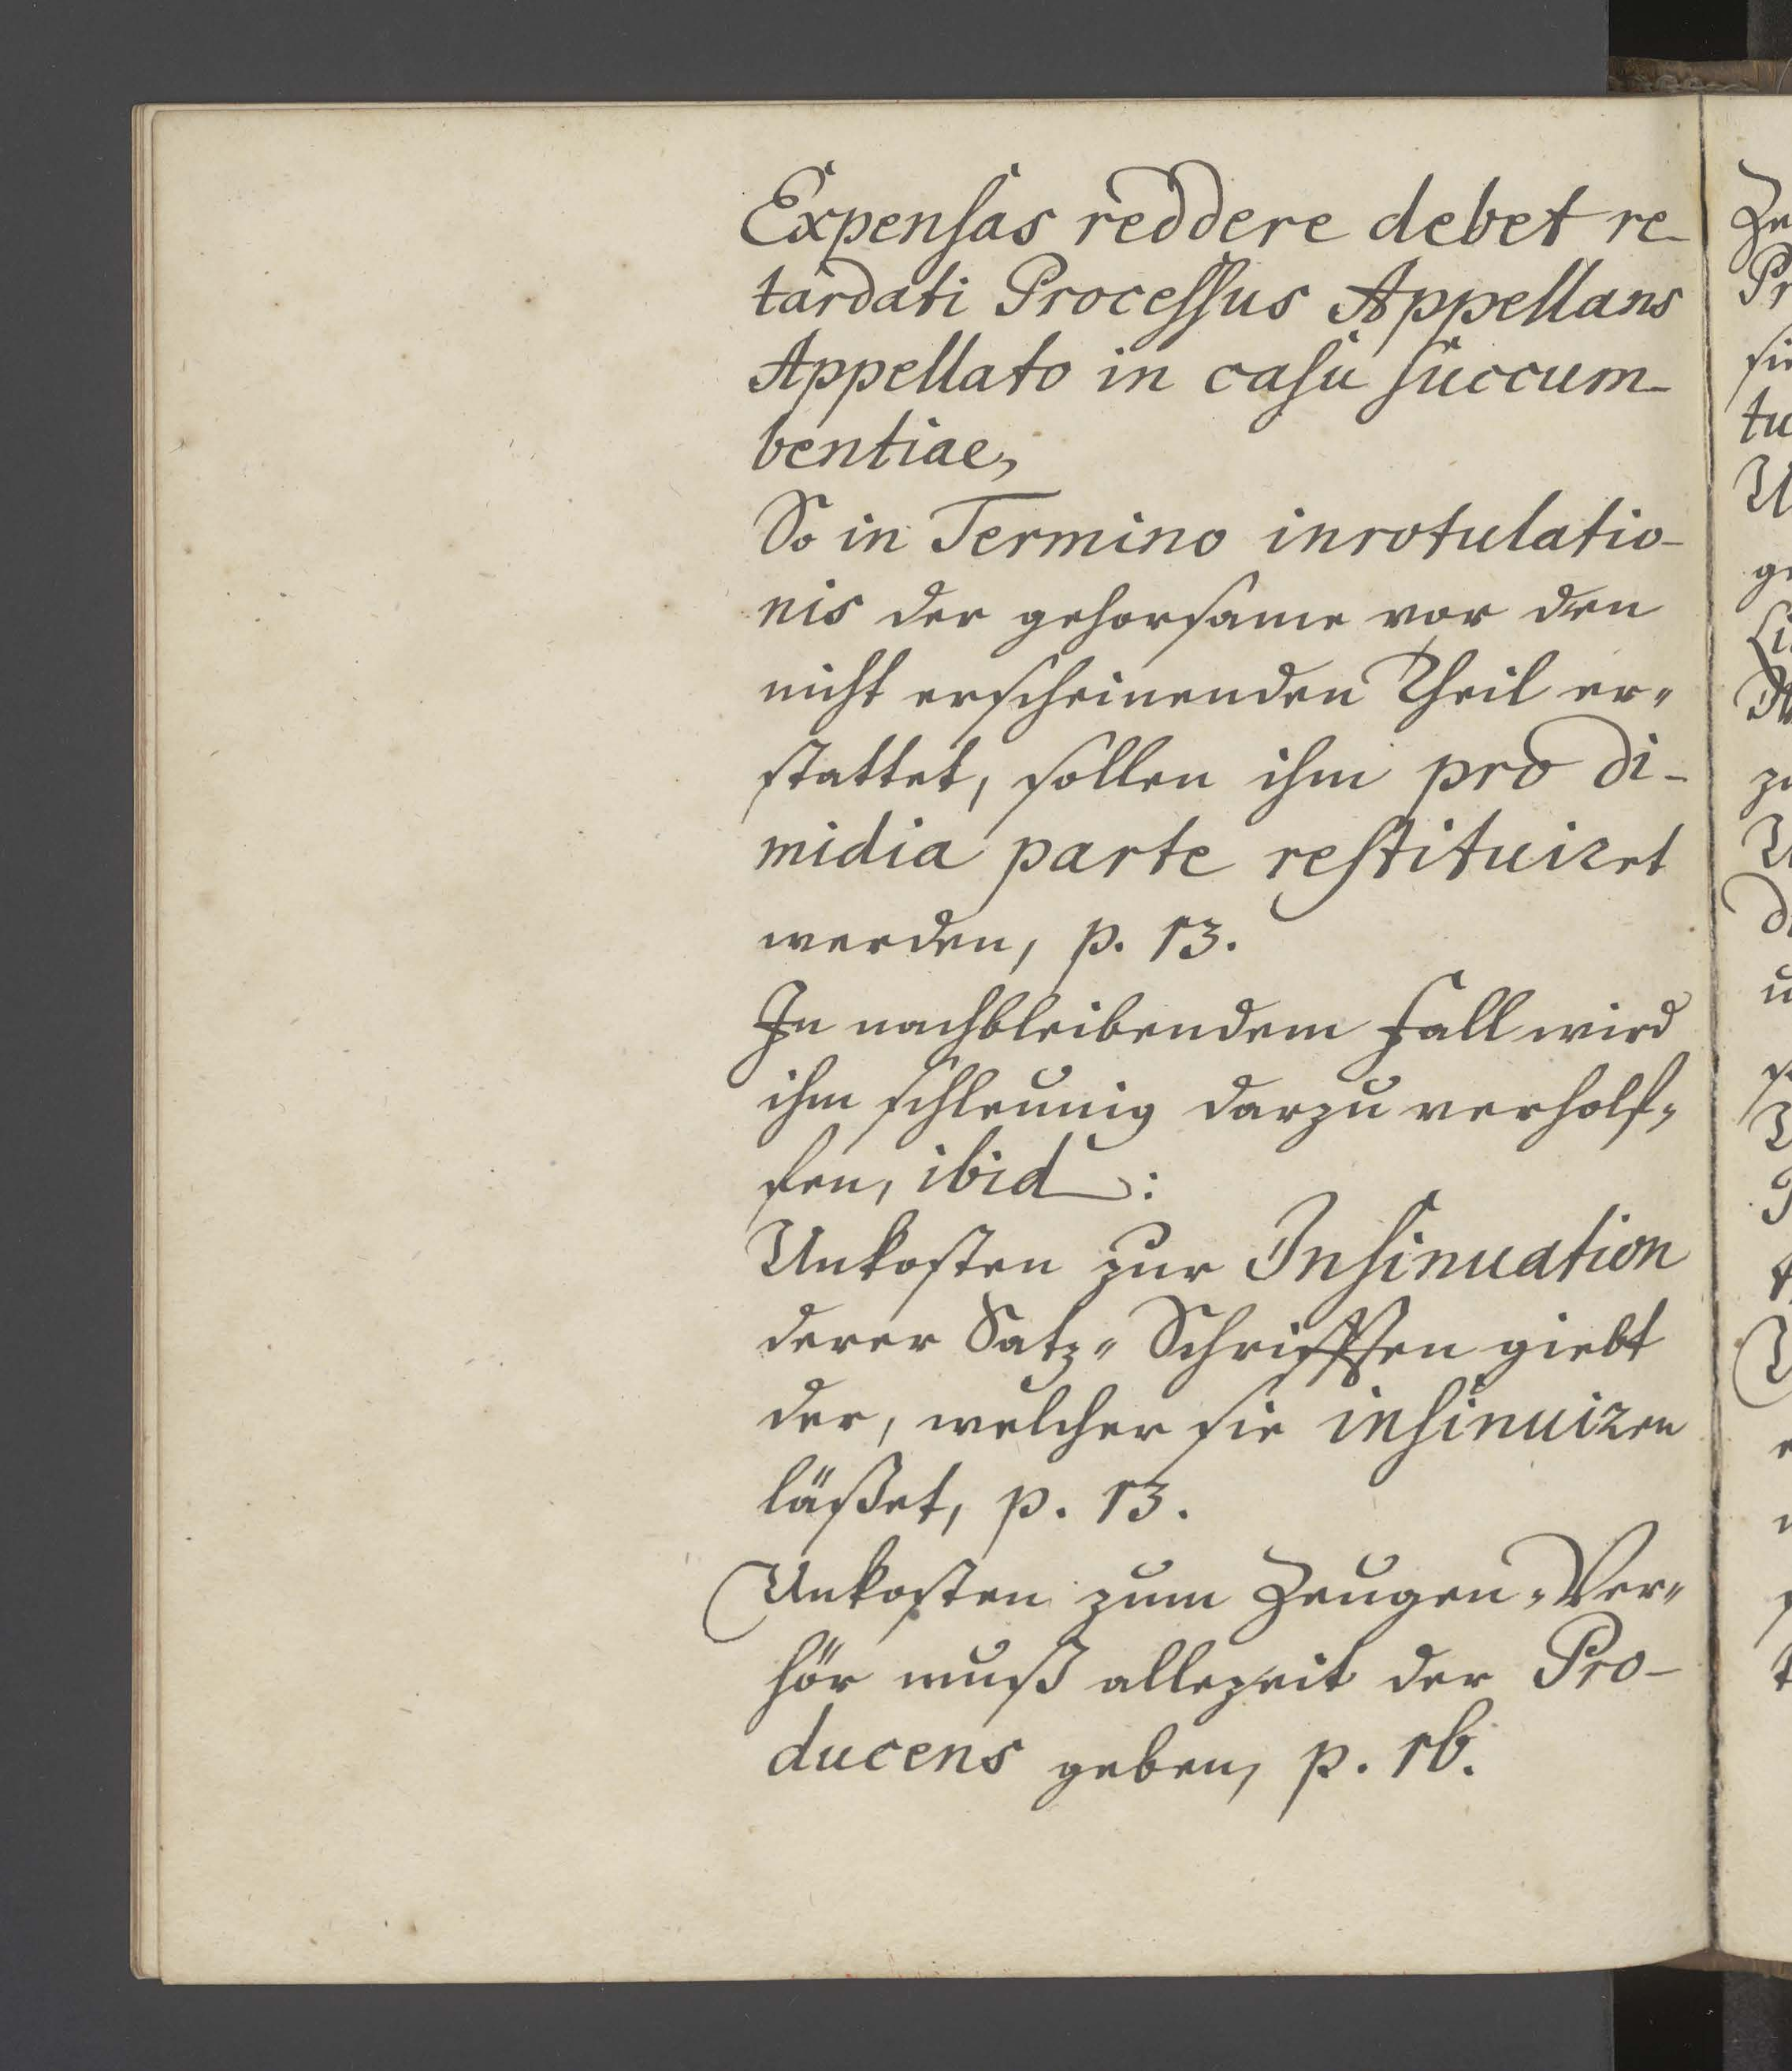 Expensas reddere debet re-
tardati Processus Appellans
Appellato in casu succum-
bentiae,
So in Termino inrotulatio-
nis der gehorsame vor den
nicht erscheinenden Theil er-
stattet, sollen ihm pro di-
midia parte restituiret
werden, p. 13.
In nachbleibendem Fall wird
ihm schleunig darzu verholf-
fen, ibid:
Unkosten zur Insinuation
derer Satz-Schrifften giebt
der, welcher sie insinuiren
läßet, p. 13.
Unkosten zum Zeugen-Ver-
hör muß allezeit der Pro-
ducens geben, p. 16.